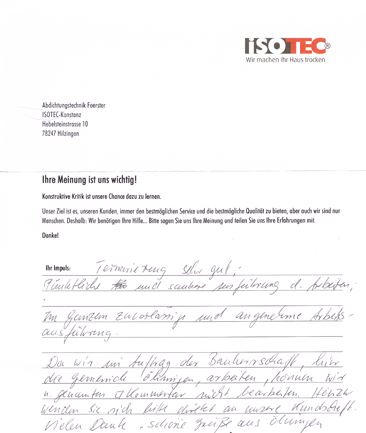 ISOTEC®
Wir machen Ihr Haus trocken
Abdichtungstechnik Foerster
ISOTEC-Konstanz
Hebelsteinstrasse 10
78247 Hilzingen
Ihre Meinung ist uns wichtig!
Konstruktive Kritik ist unsere Chance dazu zu lernen.
Unser Ziel ist es, unseren Kunden, immer den bestmöglichen Service und die bestmögliche Qualität zu bieten, aber auch wir sind nur
Menschen. Deshalb: Wir benötigen Ihre Hilfe... Bitte sagen Sie uns Ihre Meinung und teilen Sie uns Ihre Erfahrungen mit.
Danke!
Ihr Impuls: Terminierung sehr gut;
Pünktliche und saubere Ausführung d. Arbeiten;
Im Ganzen zuverlässige und angenehme Arbeits-
ausführung.
Da wir im Auftrag der Bauherrschaft, hier
die Gemeinde Öhningen, arbeiten, können wir
u. genannten Kommentar nicht bearbeiten.
wenden Sie sich bitte direkt an unsere Kundschaft.
Vielen Dank, schöne Grüße aus Öhningen